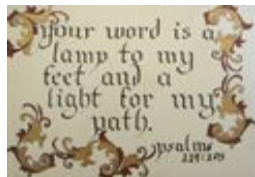 your word is a
lamp to my
feet and a
light for my
path.
psalms
119:105